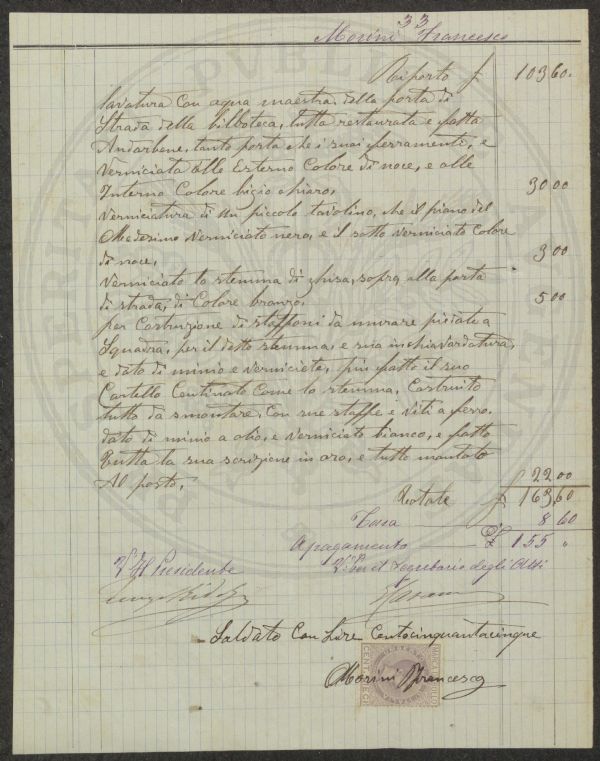 33
Morini Francesco
Riporto £ 103,60.
lavatura con aqua maestra, della porta di
Strada della bilboteca, tutta restaurata e fatta
Andarbene, tanto porta che i suoi ferramenti, e
Verniciata alle Esterno Colore di noce, e alle
Interno Colore bigio chiaro, 30 00
Verniciatura di un piccolo tavolino, che il piano del
Medesimo Verniciato nero, e il sotto Verniciato Colore
di noce, 3 00
Verniciato lo stemma di ghisa, sopra alla porta
di strada, di Colore bronzo, 5 00
per Costruzione di staffoni da murare
Squadra, per il detto stemma, e sua inchiavardatura,
e dato di minio e Verniciete, più fatto il suo
Cartello Centinato Come lo stemma, Costruito
tutto da smontare, Con sue staffe e viti a ferro.
dato di minio a olio, e Verniciato bianco, e fatto
Tutta la sua scrizione in oro, e tutto montato
Al posto, £ 22 00
Totale £ 163,60
Tara 8 60
A pagamento £ 155 "
V° Il Presidente
V° Per il Segretario degli Atti
Saldato Con Lire Centocinquantacinque
Morini Francesco